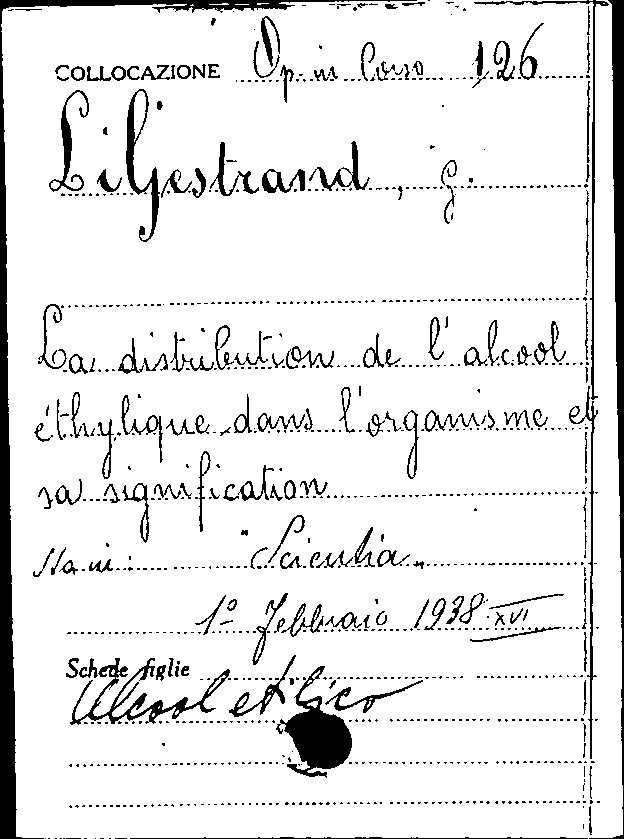 COLLOCAZIONE Op. in Corso 126
Liljestrand, G.
La distribution de l'alcool
éthylique dans l'organisme et
sa signification
Sta in: "Scientia"
1º Febbraio 1938 XVI
Schede figlie
Alcool etilico